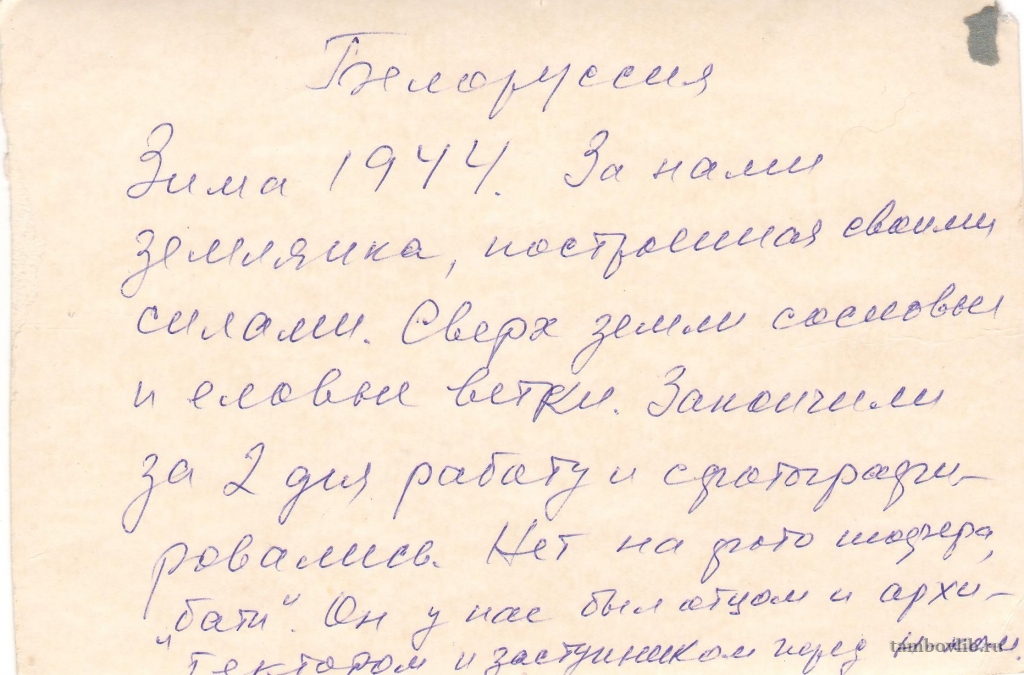 Белоруссия
Зима 1944. За нами
землянка, построенная своими
силами. Сверх земли сосновые
и еловые ветки. Закончили
за 2 дня работу и сфотографи-
ровались. Нет на фото шофера,
„бати“. Он у нас был отцом и архи-
тектором и заступником перед
tambovlib.ru